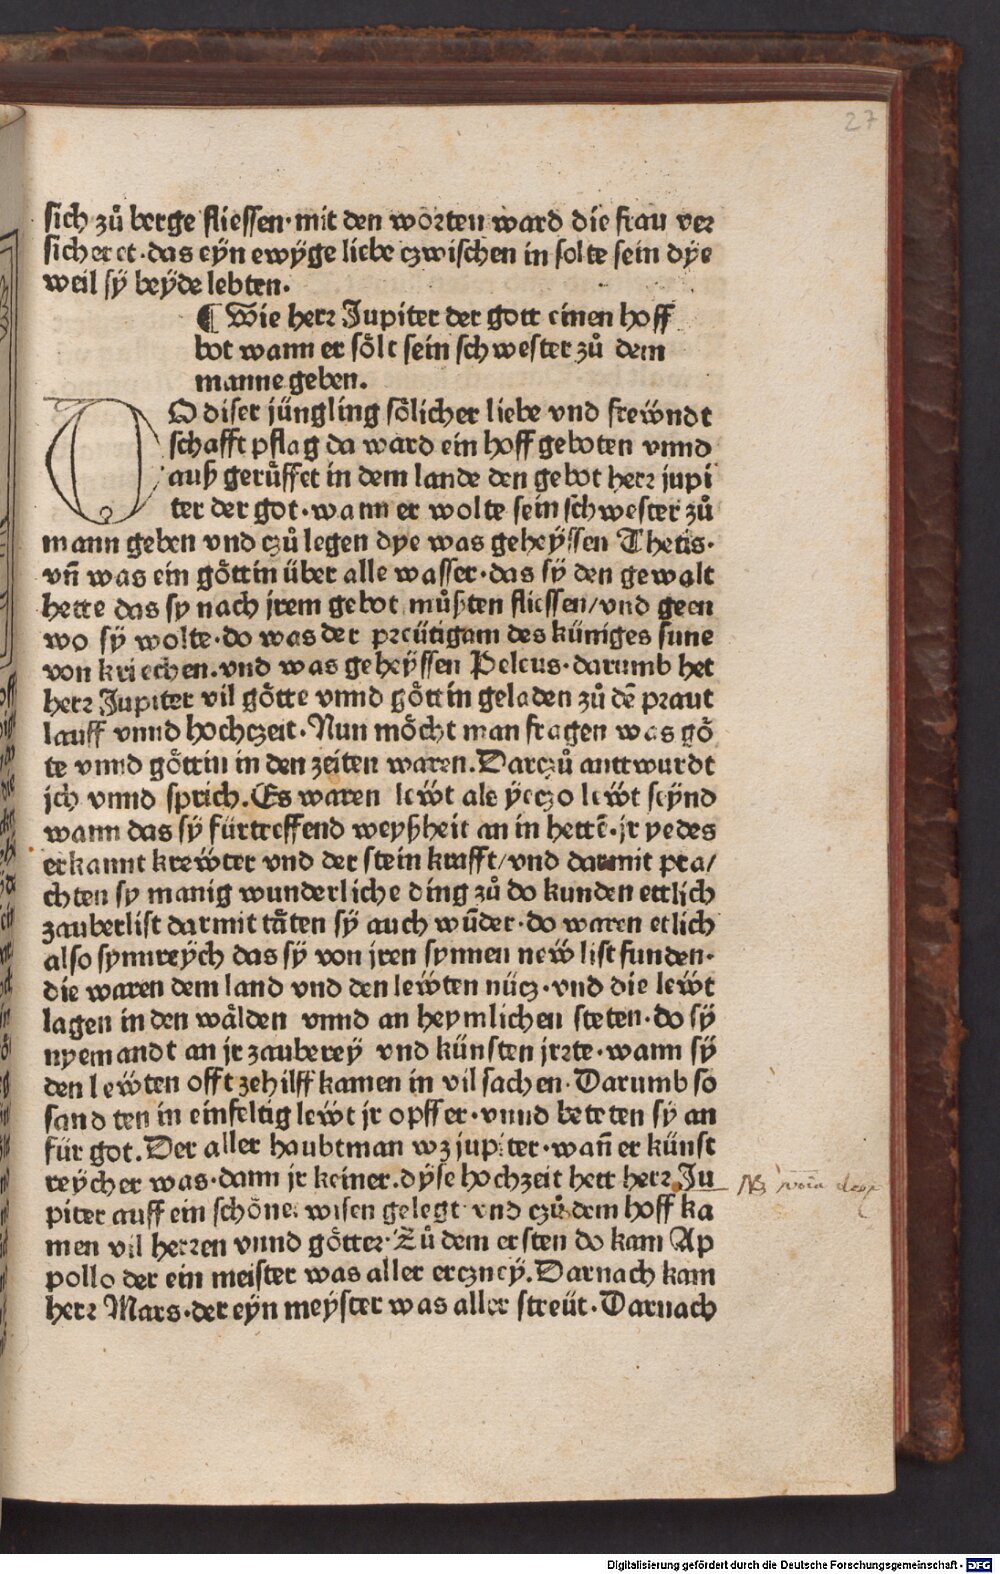 27
sich zů berge fliessen·mit den worten ward die frau ver
sicheret·das eyn ewyge liebe czwischen in solte sein dye
weil sÿ beÿde lebten.
¶ Wie herꝛ Jupiter der gott einen hoff
bot wann er sölt sein schwester zů dem
manne geben.
DO diser jüngling sölicher liebe vnd frewndt
schafft pflag da ward ein hoff geboten vnnd
auß gerůffet in dem lande den gebot herꝛ jupi
ter der got·wann er wolte sein schwester zů
mann geben vnd czů legen dye was geheyssen Thetis·
vñ was ein göttin über alle wasser·das sÿ den gewalt
hette das sy nach jrem gebot můßten fliessen/vnd geen
wo sÿ wolte·do was der preütigam des küniges sune
von kriechen.vnd was geheÿssen Peleus·darumb het
herꝛ Jupiter vil götte vnnd göttin geladen zů dē praut
lauff vnnd hochczeit·Nun möcht man fragen was gö
te vnnd göttin in den zeiten waren.Darczů anttwurdt
jch vnnd sprich.Es waren lewt als yeczo lewt seÿnd
wann das sÿ fürtreffend weyßheit an in hettē·jr yedes
erkannt krewter vnd der stein krafft/vnd darmit pra/
chten sy manig wunderliche ding zů do kunden ettlich
zauberlist darmit täten sÿ auch wūder·do waren etlich
also synnreÿch das sÿ von jren synnen new list funden·
die waren dem land vnd den lewten nücz·vnd die lewt
lagen in den wälden vnnd an heymlichen steten·do sÿ
nyemandt an jr zauberey vnd künsten jrꝛte·wann sÿ
den lewten offt zehilff kamen in vil sachen·Darumb so
sandten in einfeltig lewt jr opffer·vnnd beteten sÿ an
für got.Der aller haubtman wz jupiter·wañ er künst
reÿcher was·dann jr keiner.dÿse hochzeit hett herꝛ Ju
piter auff ein schöne wisen gelegt vnd czů dem hoff ka
men vil herꝛen vnnd götter·Zů dem ersten do kam Ap
pollo der ein meister was aller erczney.Darnach kam
herꝛ Mars·der eÿn meÿster was aller streüt·Darnach
Digitalisierung gefördert durch die Deutsche Forschungsgemeinschaft - DFG